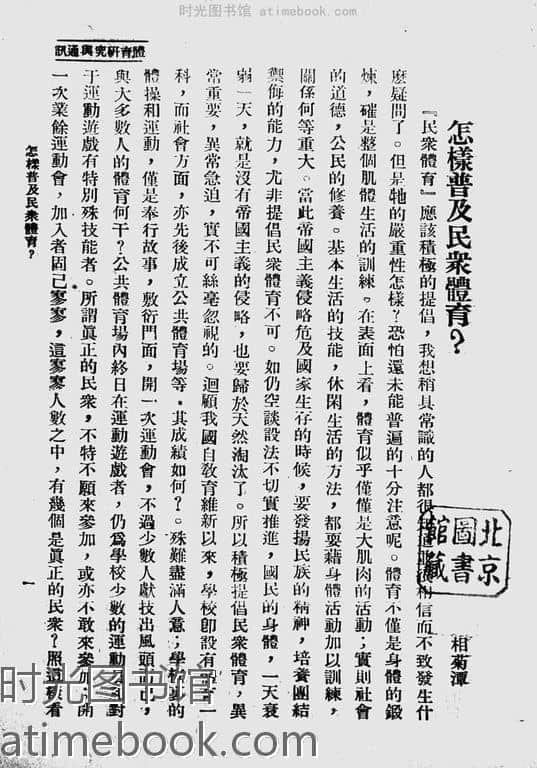 时光图书馆 www.atimebook.com
體育研究與通訊
怎樣普及民衆體育?
相菊潭
『民衆體育』應該積極的提倡,我想稍具常識的人都很知道 相信而不致發生什
麽疑問了。但是牠的嚴重性怎樣?恐怕還未能普遍的十分注意呢。體育不僅是身體的鍛
煉,確是整個肌體生活的訓練。在表面上看,體育似乎僅僅是大肌肉的活動;實則社會
的道德,公民的修養。基本生活的技能,休閑生活的方法,都要藉身體活動加以訓練,
關係何等重大。當此帝國主義侵略危及國家生存的時候,要發揚民族的精神,培養團結
禦侮的能力,尤非提倡民衆體育不可。如仍空談設法不切實推進,國民的身體,一天衰
弱一天,就是沒有帝國主義的侵略,也要歸於天然淘汰了。所以積極提倡民衆體育,異
常重要,異常急迫,實不可絲毫忽視的。迴顧我國自敎育維新以來,學校卽設有 一
科,而社會方面,亦先後成立公共體育場等。其成績如何?。殊難盡滿人意;學校 的
體操和運動,僅是奉行故事,敷衍門面,開一次運動會,不過少數人獻技出風頭 ,
與大多數人的體育何干?公共體育場內終日在運動遊戲者,仍爲學校少數的運動 對
于運動遊戲有特別殊技能者。所謂眞正的民衆,不特不願來參加,或亦不敢來參加,開
一次業餘運動會,加入者固己寥寥,這寥寥人數之中,有幾個是眞正的民衆?照這樣看
怎樣普及民衆體育?
一
北京
圖書
館藏
时光图书馆
atimebook.com